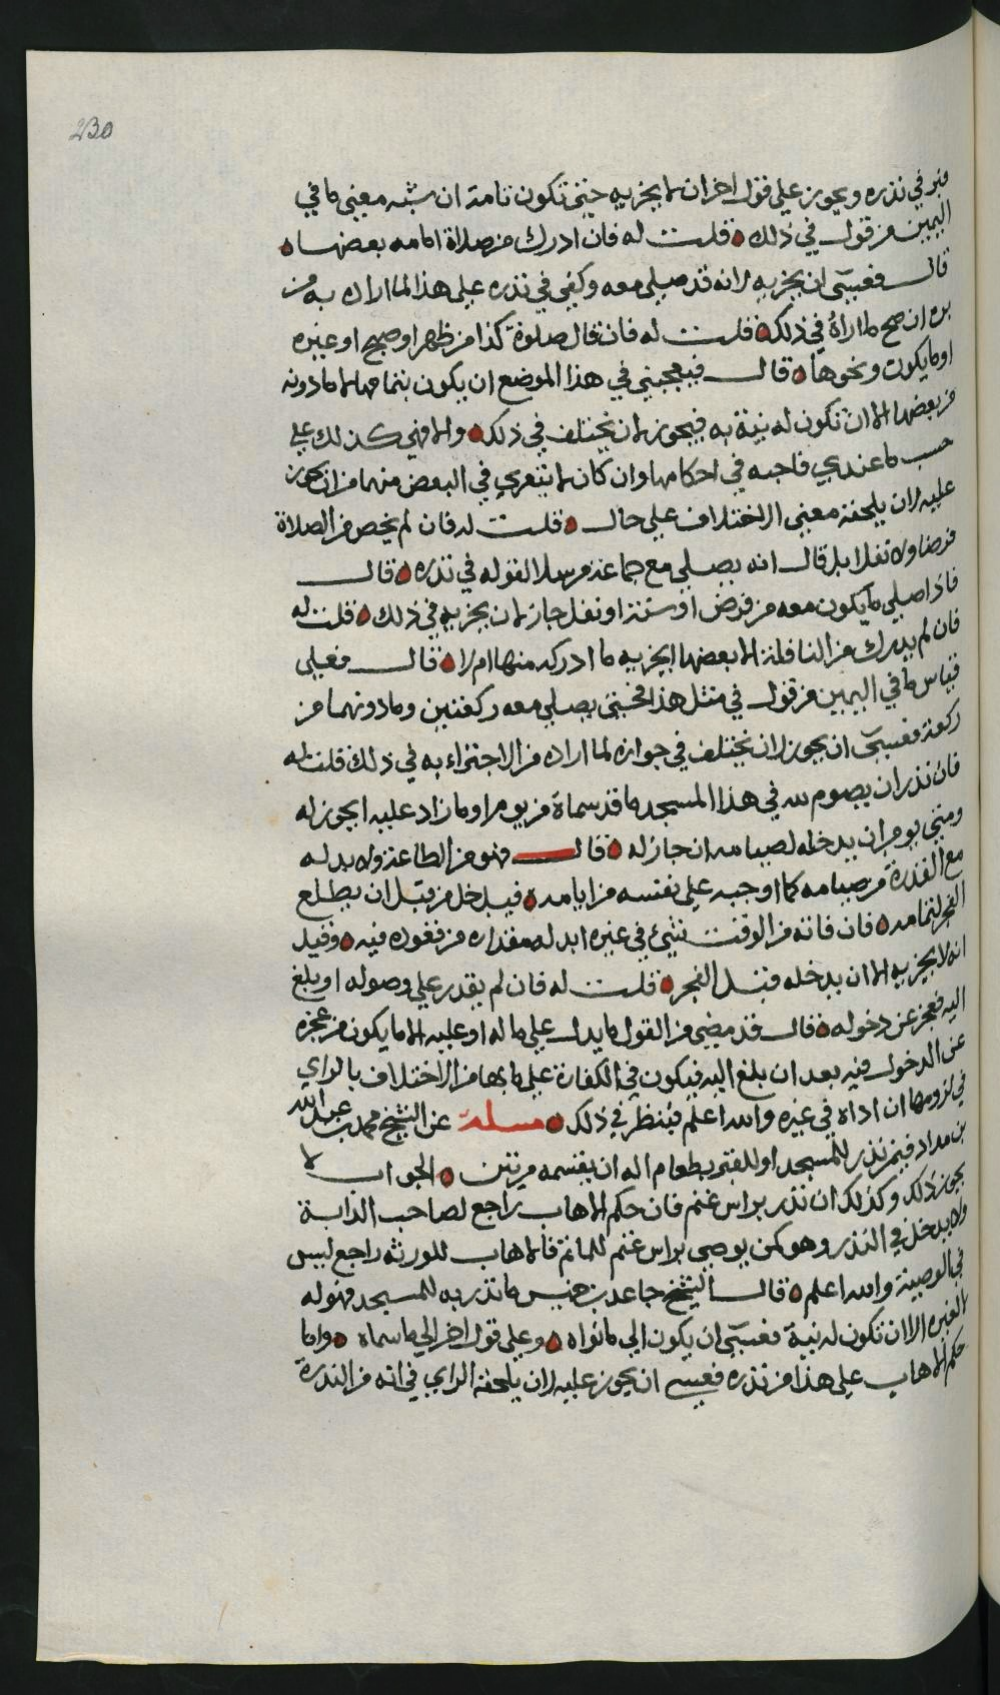 230
فبر في نذره ويجوز علي قول اخر ان لا يجزيه حتى تكون تامة ان شبه معنى ما في
اليمين من قول في ذلك قلت له فان ادرك من صلاة امامه بعضها
قال فعسى ان يجزيه لانه قد صلى معه وكفى في نذره على هذا لما اراد به من
بره ان صح ما اراهُ في ذلك قلت له فان قال صلوة كذا من ظهر او صبح او غيره
او ما يكون ونحوها قال فيعجبني في هذا الموضع ان يكون بتمامها لا ما دونه
من بعضها الا ان تكون له نية به فيجوز لان يختلف في ذلك والا فهي كذلك على
حسب ما عندي فاجبه في احكامها وان كان لا يتعري في البعض منهما من ان يجوز
عليه لان يلحقه معنى الاختلاف علي حال قلت له فان لم يخص من الصلاة
فرضا ولا نفلا بل قال انه يصلي مع جماعة مرسلا لقوله في نذره قال
فاذا صلي ما يكون معه من فرض او سنة او نفل جاز لان يجزيه في ذلك قلت له
فان لم يدرك من النافلة الا بعضها ايجزيه ما ادركه منها ام لا قال فعلى
قياس ما في اليمين من قول في مثل هذا فحتى يصلي معه ركعتين وما دونهما من
ركعة فعسى ان يجوز لان يختلف في جوازه لما اراده من الاجتزاء به في ذلك قلت له
فان نذر ان يصوم لله في هذا المسجد ما قد سماه من يوم او ما زاد عليه ايجوز له
ومتى يومر ان يدخله لصيامه ان جاز له قال فهو من الطاعة ولا بد له
مع القدرة من صيامه كما اوجبه على نفسه من ايامه فيدخل من قبل ان يطلع
الفجر لتمامه فان فاته من الوقت شيئ في غيره ابدله مقداره من قعوده فيه وقيل
انه لا يجزيه الا ان يدخله قبل الفجر قلت له فان لم يقدر علي وصوله او بلغ
اليه فعجز عن دخوله قال قد مضى من القول ما يدل علي ما له او عليه الا ما يكون من عجزه
عن الدخول فيه بعد ان بلغ اليه فيكون في الكفارة على ما بها من الاختلاف بالراي
في لزومها ان اداه في غيره والله اعلم فينظر في ذلك مسلة عن الشيخ محمد بن عبد الله
بن مداد فيمن نذر للمسجد او للقبر بطعام اله ان يقسمه مرتين الجواب لا
يجوز ذلك وكذلك ان نذر براس غنم فان حكم الاهاب راجع لصاحب الدابة
ولا يدخل في النذر وهو كمن يوصي براس غنم للماتم فالاهاب للورثه راجع ليس
في الوصية والله اعلم قال الشيخ جاعد بن خميس ما نذر به للمسجد فهو له
لا لغيره الا ان تكون له نية فعسى ان يكون الي ما نواه وعلى قول اخر الي ما سماه واما
حكم الاهاب على هذا من نذره فعسى ان يجوز عليه لان يلحقه الراي في انه من النذرة